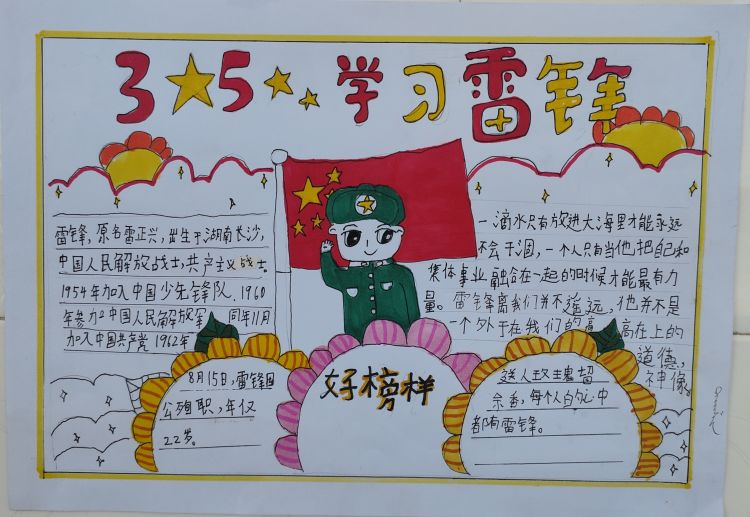 3★5 学习雷锋
雷锋,原名雷正兴,出生于湖南长沙,
中国人民解放战士,共产主义战士
1954年加入中国少年锋队、1960
年参加中国人民解放军 同年11月
加入中国共产党 1962年
8月15日,雷锋因
公殉职,年仅
22岁。
好榜样
一滴水只有放进大海里才能永远
不会干涸,一个人只有当他把自己和
集体事业融合在一起的时候才能最有力
量。雷锋离我们并不遥远,他并不是
一个外于在我们的高高在上的
道德,
神像。
送人玫瑰留
余香,每个人的心中
都有雷锋。